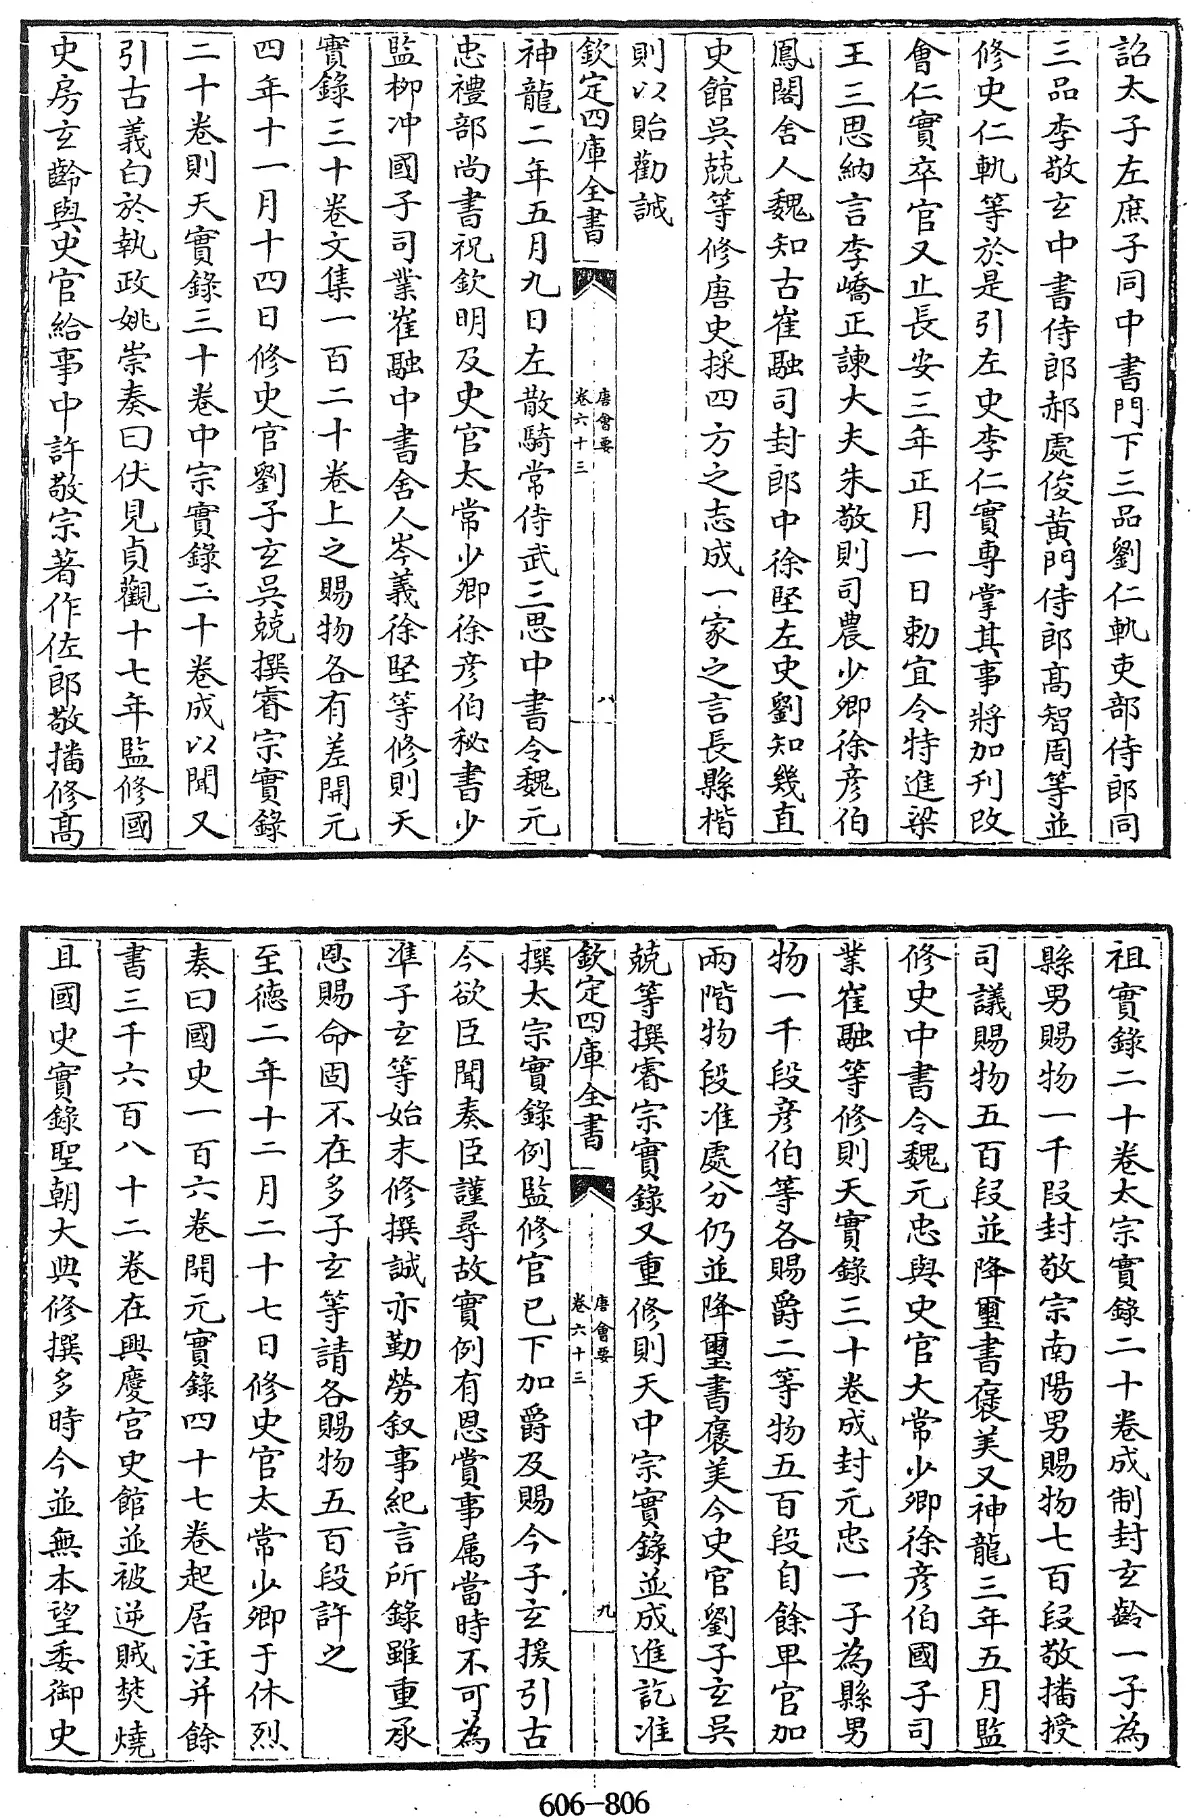 詔太子左庶子同中書門下三品劉仁軌吏部侍郎同
三品李敬玄中書侍郎郝處俊黃門侍郎髙智周等並
修史仁軌等於是引左史李仁實專掌其事將加刋改
會仁實卒官又止長安三年正月一日勅宜令特進梁
王三思納言李嶠正諫大夫朱敬則司農少卿徐彦伯
鳳閣舍人魏知古崔融司封郎中徐堅左史劉知幾直
史館吳兢等修唐史採四方之志成一家之言長縣楷
則以貽勸誡
欽定四庫全書
唐會要
卷六十三
八
神龍二年五月九日左散騎常侍武三思中書令魏元
忠禮部尚書祝欽明及史官太常少卿徐彦伯秘書少
監柳冲國子司業崔融中書舍人岑羲徐堅等修則天
實錄三十卷文集一百二十卷上之賜物各有差開元
四年十一月十四日修史官劉子玄吳兢撰睿宗實錄
二十卷則天實錄三十卷中宗實錄二十卷成以聞又
引古義白於執政姚崇奏曰伏見貞觀十七年監修國
史房玄齡與史官給事中許敬宗著作佐郎敬播修髙
祖實錄二十卷太宗實錄二十卷成制封玄齡一子為
縣男賜物一千段封敬宗南陽男賜物七百段敬播授
司議賜物五百段並降璽書褒美又神龍三年五月監
修史中書令魏元忠與史官大常少卿徐彦伯國子司
業崔融等修則天實錄三十卷成封元忠一子為縣男
物一千段彦伯等各賜爵二等物五百段自餘卑官加
兩階物段准處分仍並降璽書褒美今史官劉子玄吳
兢等撰睿宗實錄又重修則天中宗實錄並成進訖准
欽定四庫全書
唐會要
卷六十三
九
撰太宗實錄例監修官已下加爵及賜今子玄援引古
今欲臣聞奏臣謹尋故實例有恩賞事属當時不可為
凖子玄等始末修撰誠亦勤勞叙事紀言所錄雖重承
恩賜命固不在多子玄等請各賜物五百段許之
至德二年十二月二十七日修史官太常少卿于休烈
奏曰國史一百六卷開元實錄四十七卷起居注并餘
書三千六百八十二卷在興慶宫史館並被逆賊焚燒
且國史實錄聖朝大典修撰多時今並無本望委御史
606-806